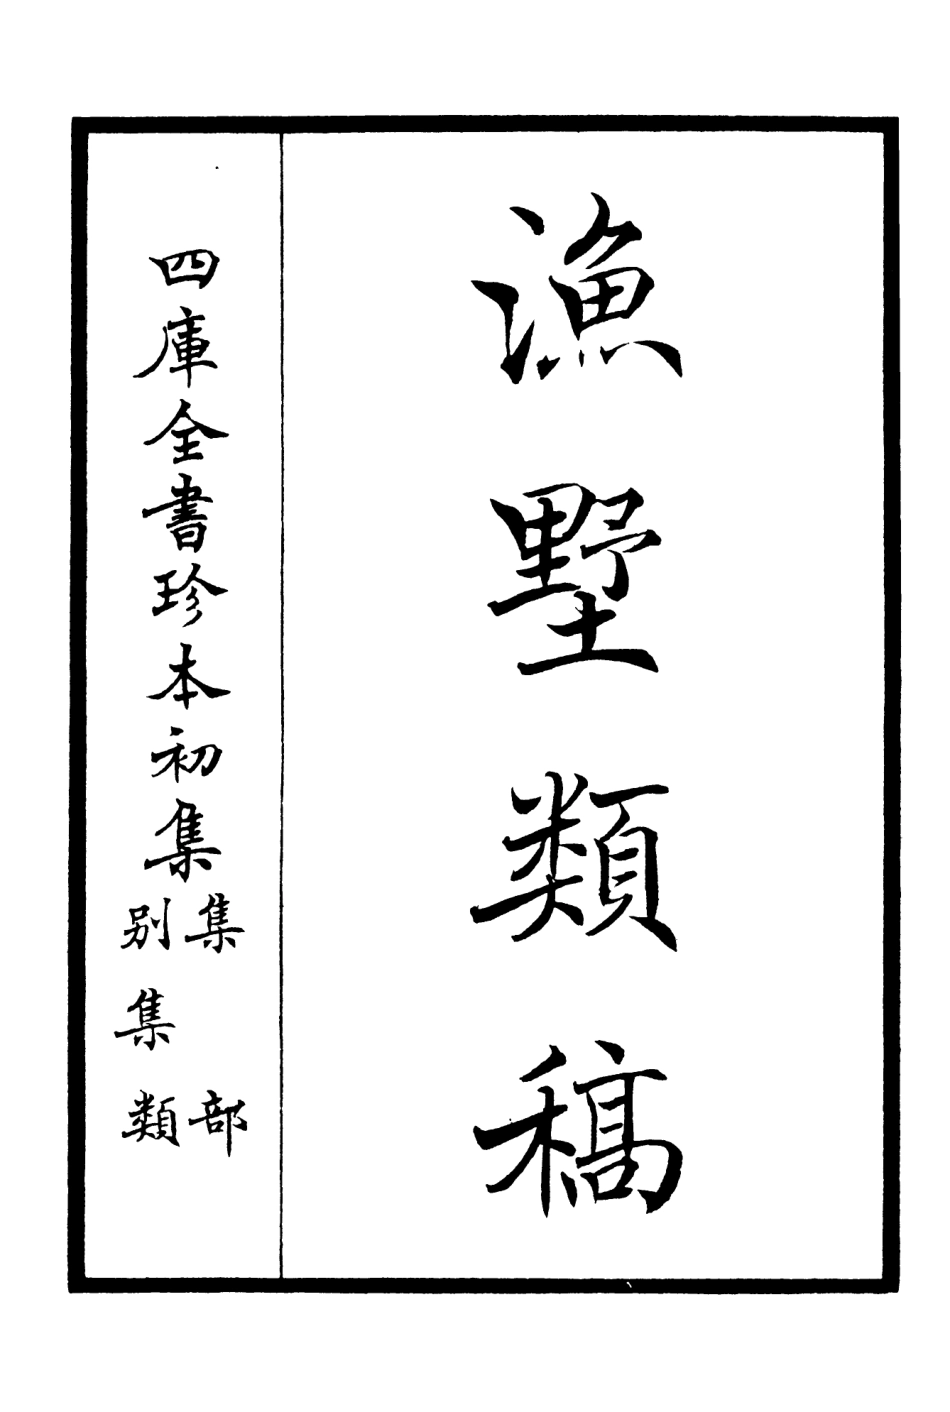 漁墅類稿
四庫全書珍本初集
集部
别集類